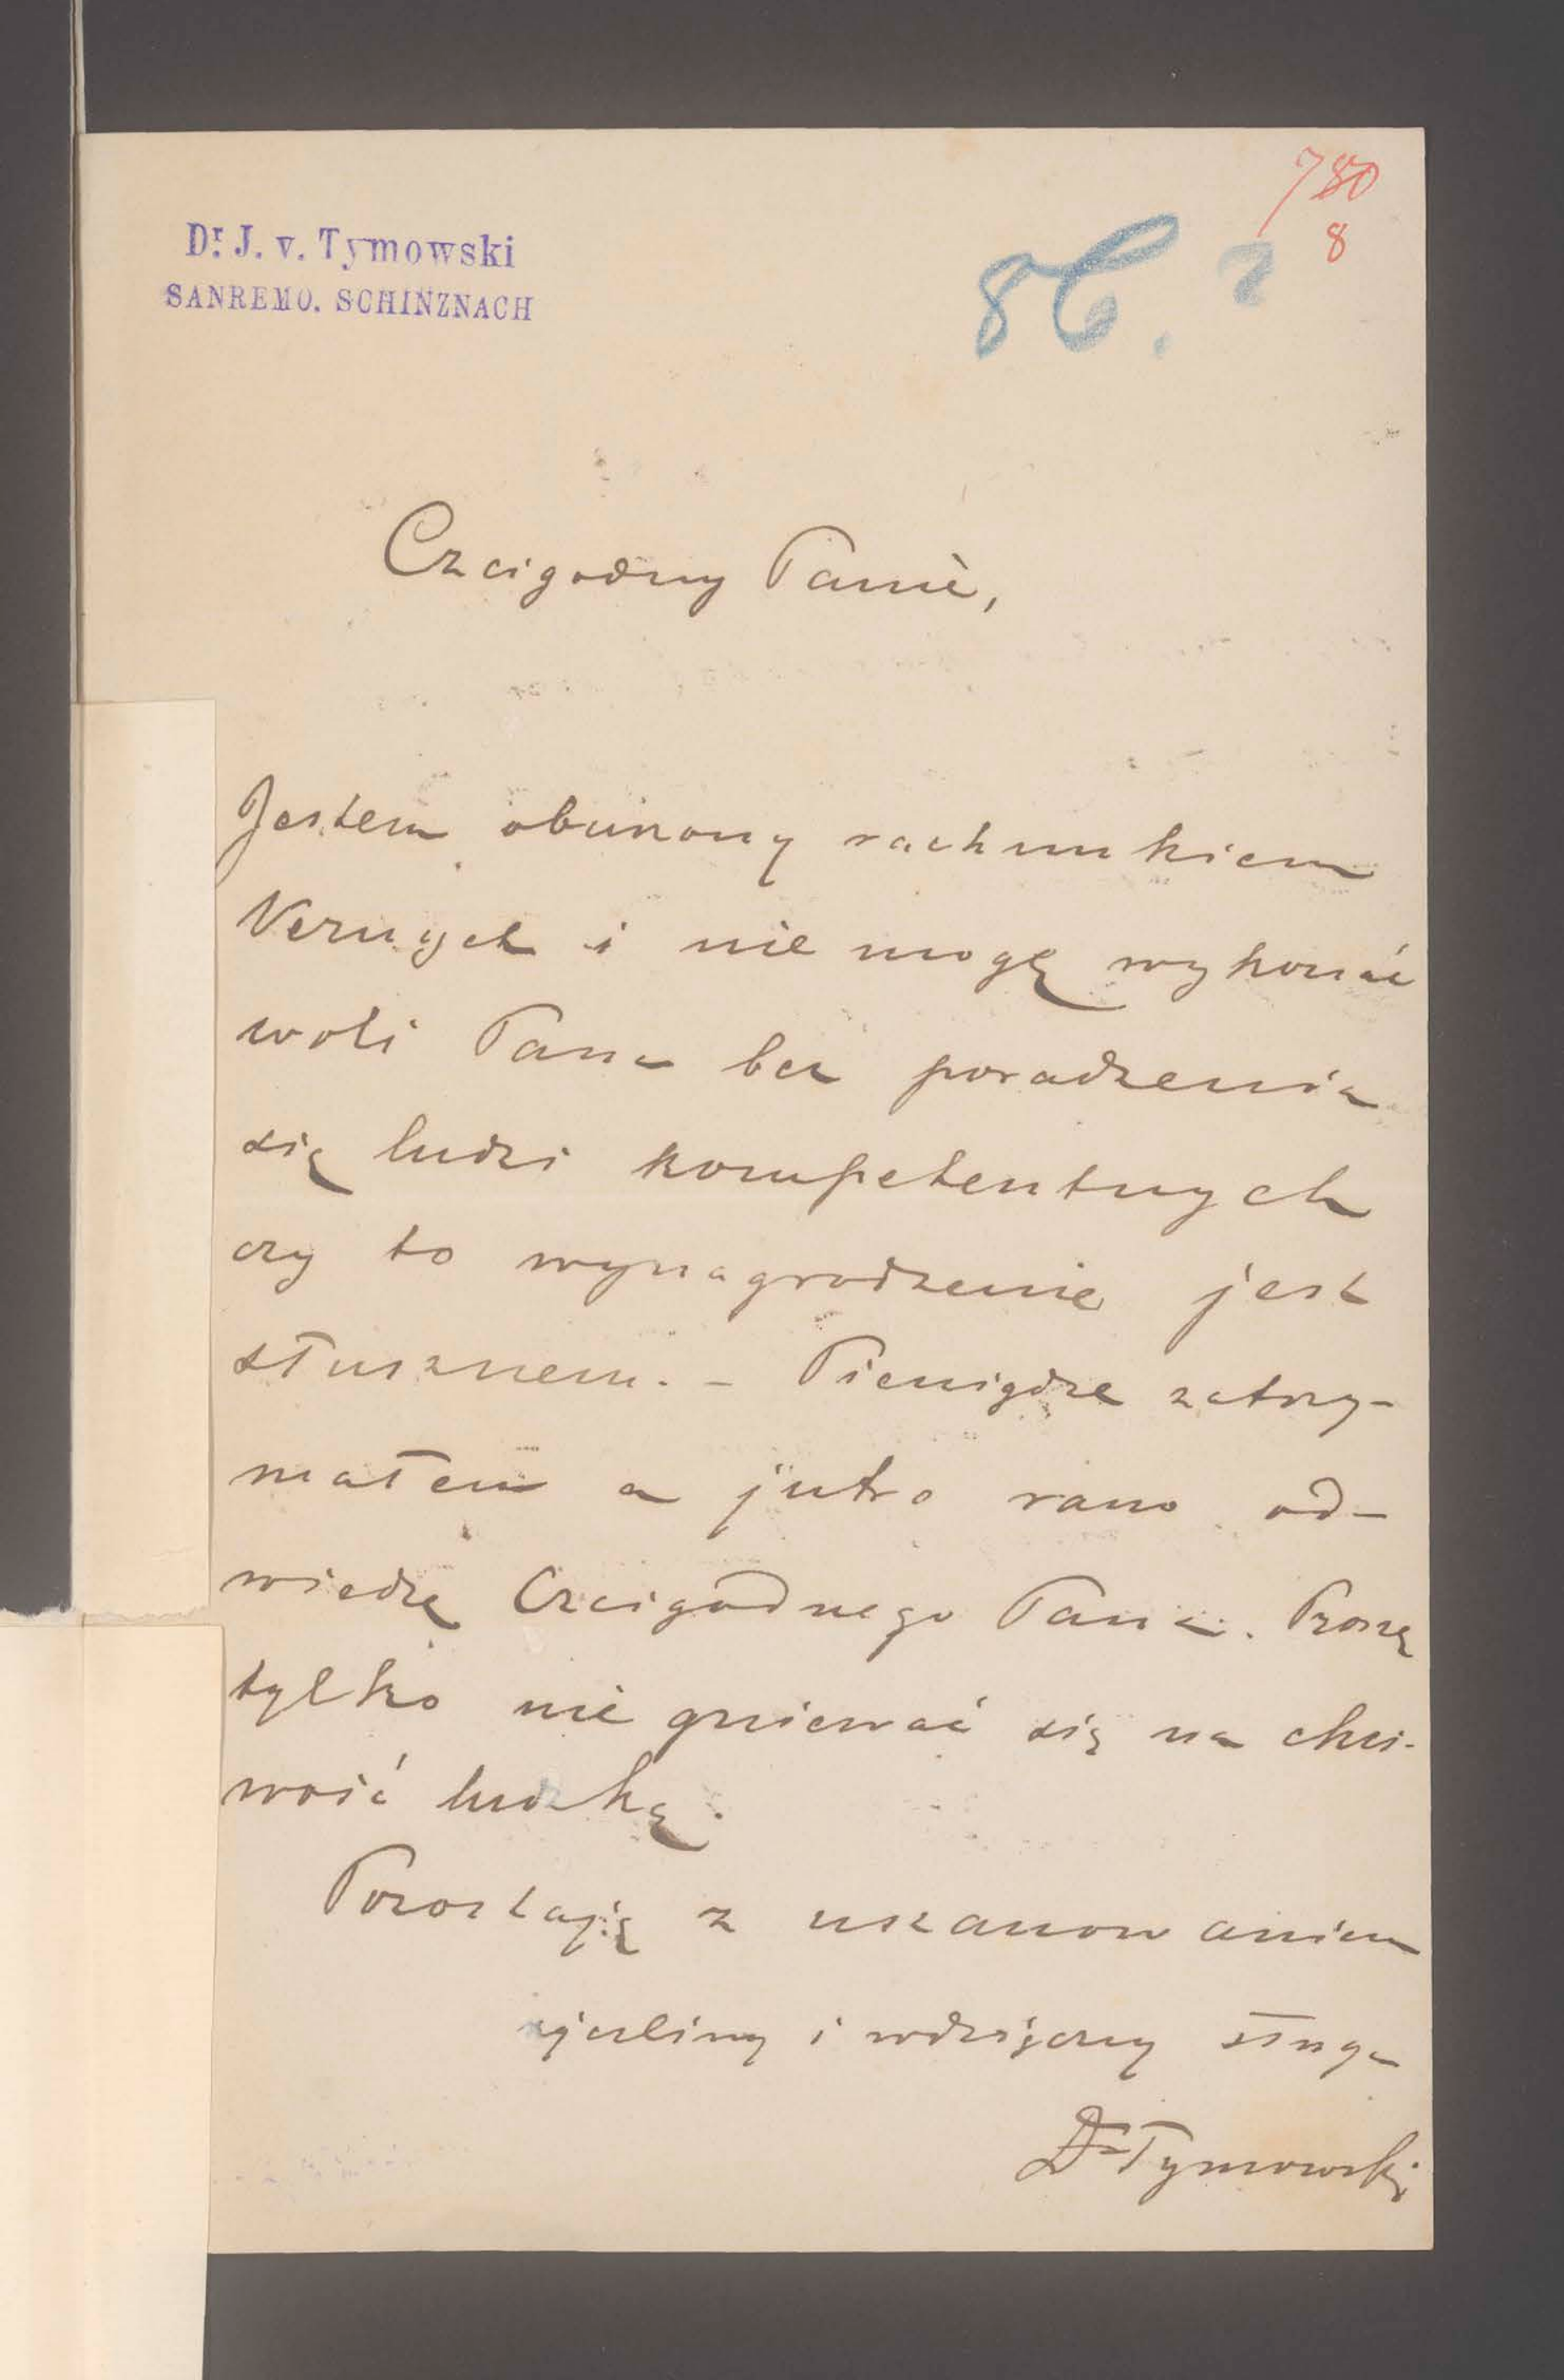 780
8
Dr. J. v. Tymowski
SANREMO. SCHINZNACH
Czcigodny Panie,
Jestem oburzony rachunkiem
i nie mogę wykonać
woli Pana bez poradzenia
się ludzi kompetentnych
czy to wynagrodzenie jest
słusznem. - Pieniądze zatrzy-
małem a jutro rano od-
wiedzę Czcigodnego Pana. Proszę
tylko nie gniewać się na chci-
wość ludzką.
Pozostaję z uszanowaniem
życzliwy i wdzięczny sługa
Dr Tymowski